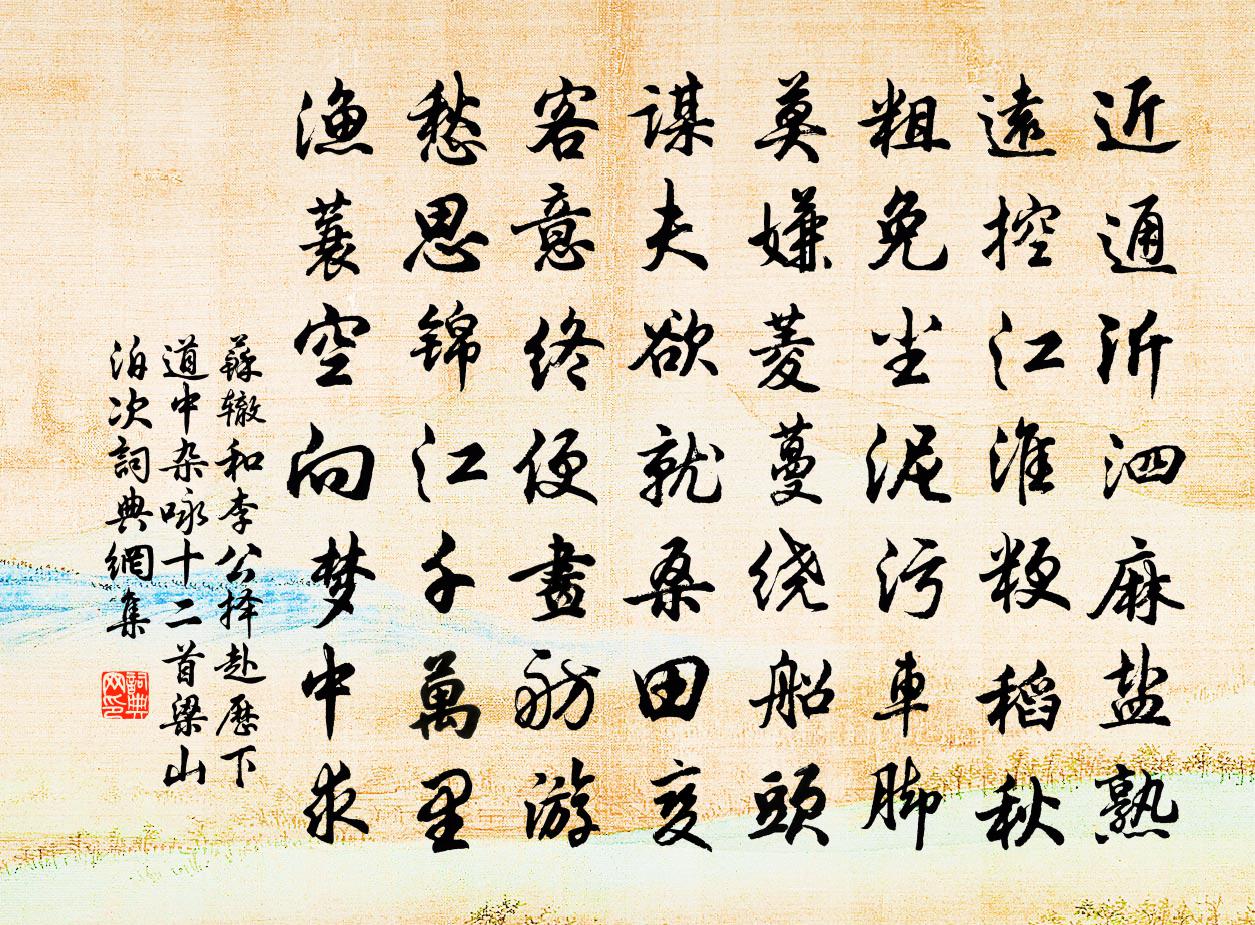 近通沂泗麻盐熟
遠控江淮粳稻秋
粗免尘泥污車脚
莫嫌菱蔓绕船頭
谋夫欲就桑田变
客意终便畫舫游
愁思锦江千萬里
渔蓑空向梦中求
蘇辙和李公择赴歷下
道中杂咏十二首梁山
泊次詞典網集
詞典网印